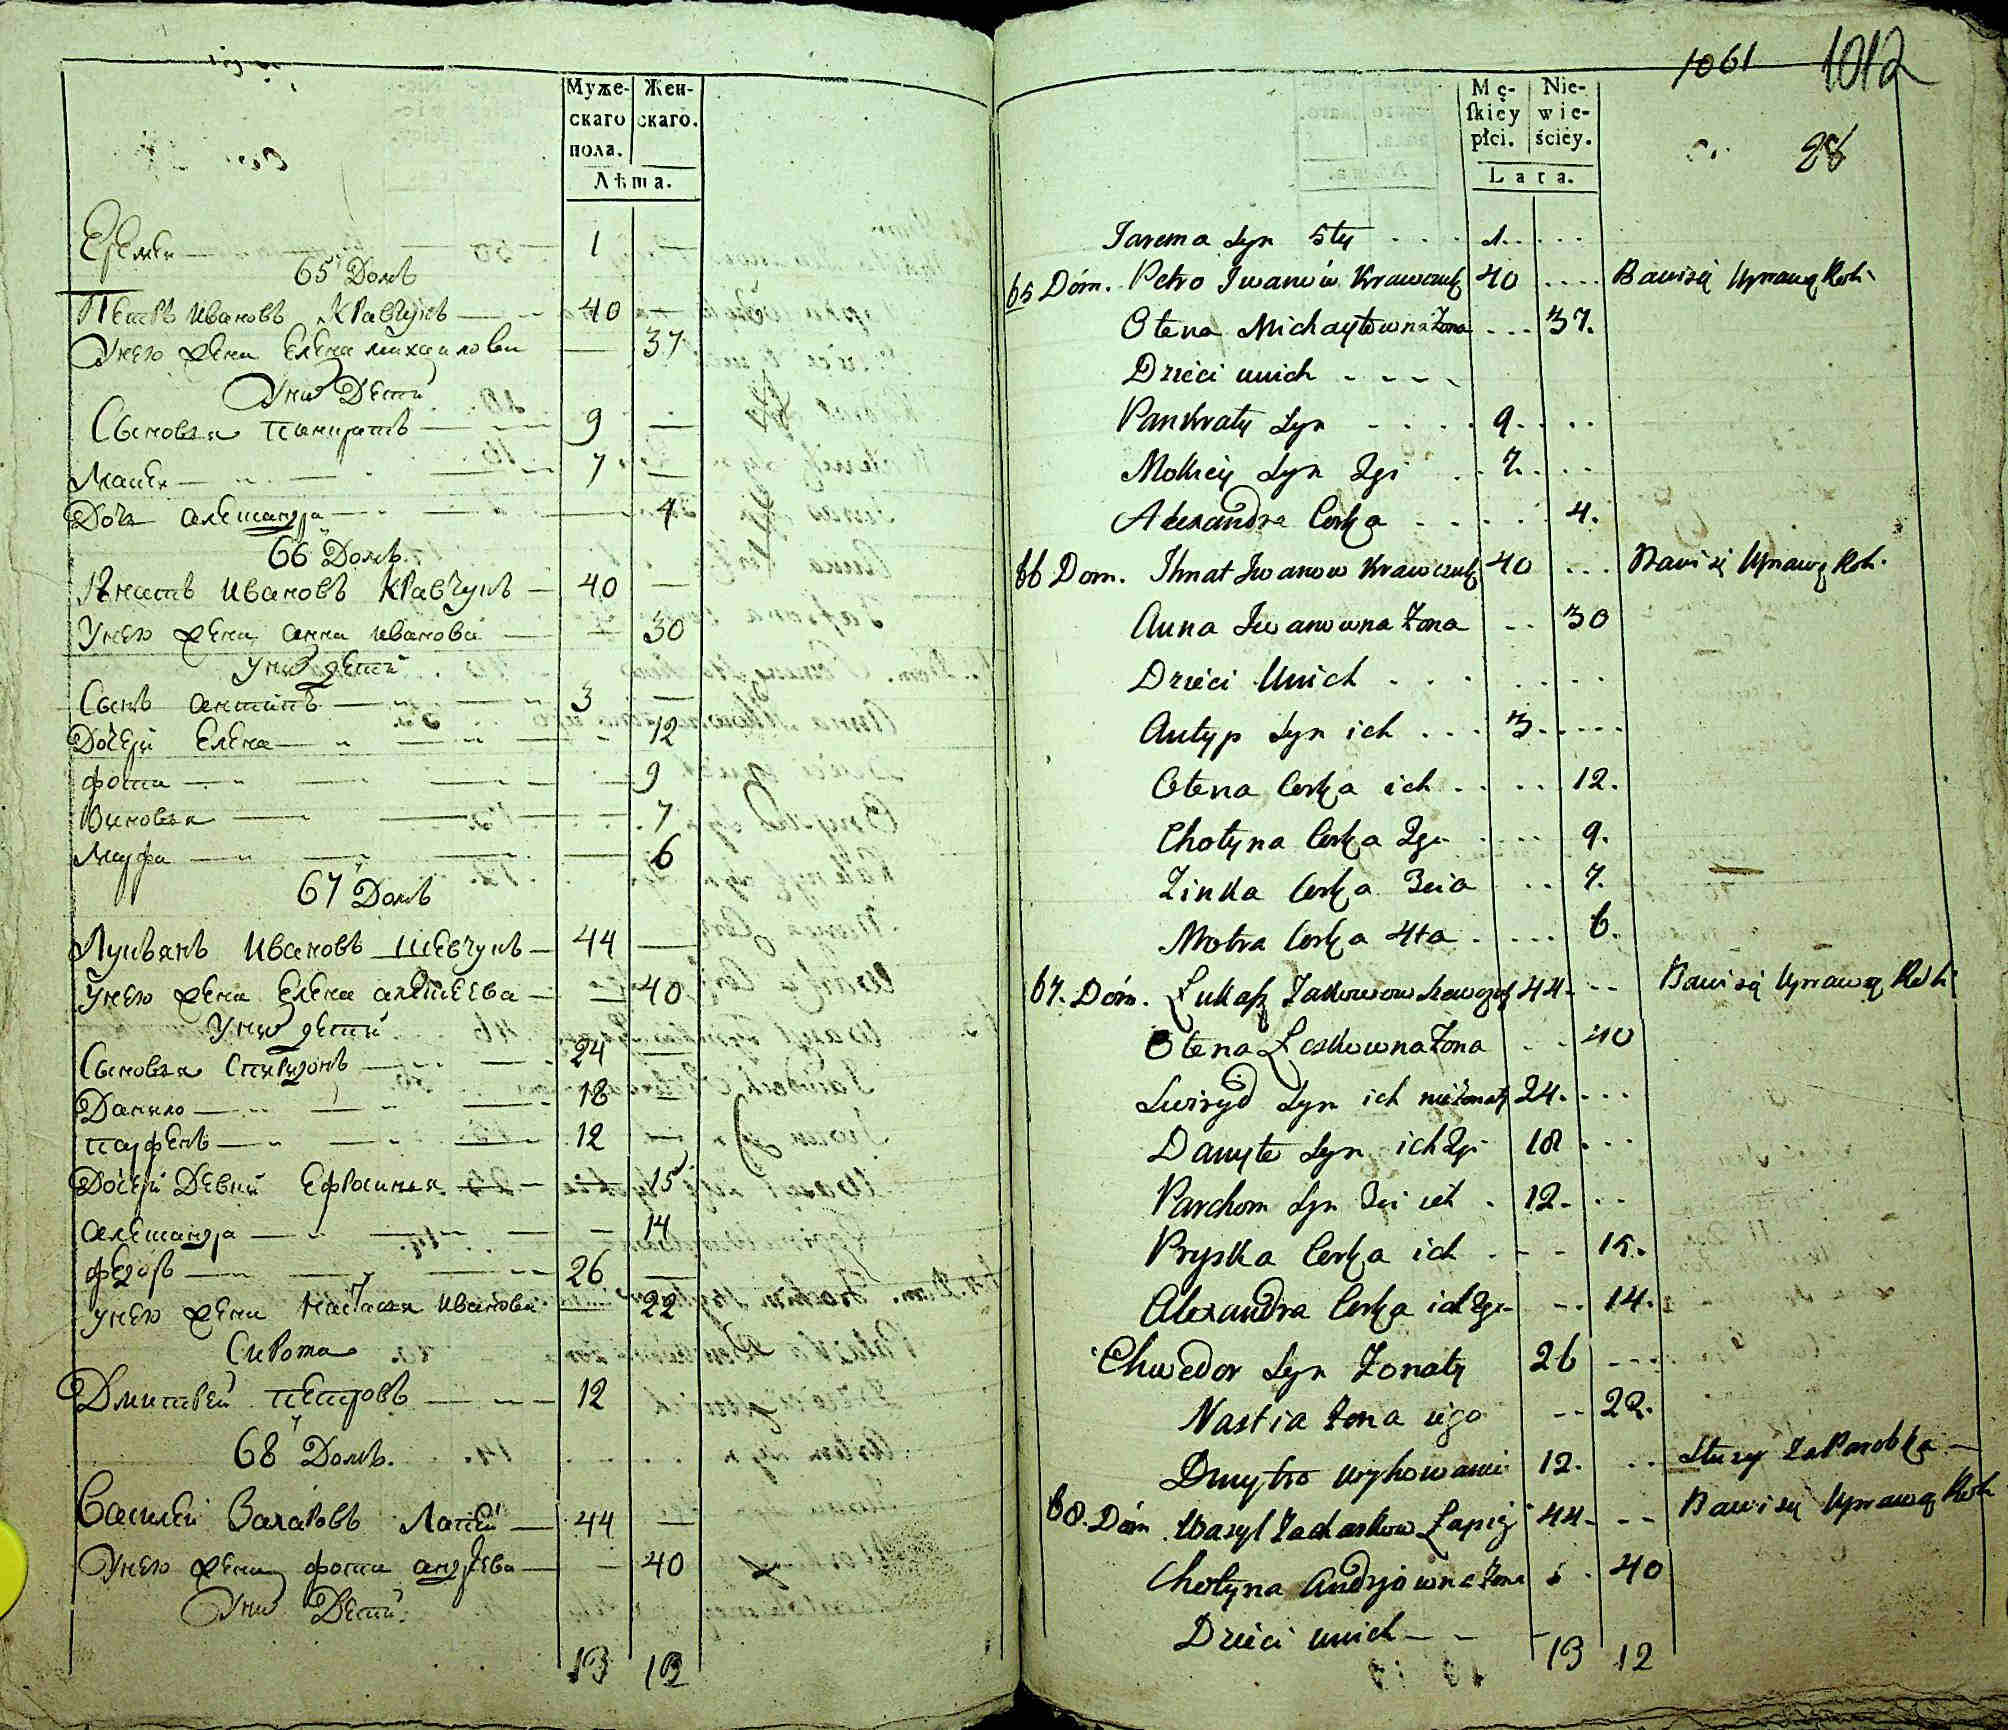 Муже-
скаго
пола.
Жен-
скаго.
Лѣта.
Еремеи 1
65 Домъ
Петръ Ивановъ Кравчукъ 40
У него жена Елена Михаилова 37
У них Дети
Сыновья Панкратъ 9
Мокеи 7
Дочь Александра 4
66 Домъ
Игнатъ Ивановъ Кравчукъ 40
У него жена Анна Иванова 30
У них дети
Сынъ Антипъ 3
Дочери Елена 12
Фотиа 9
Зиновья 7
Марфа 6
67 Домъ
Лукъянъ Ивановъ Шевчукъ 44
У него жена Елена Алексеева 40
У них дети
Сыновья Спиридонъ 24
Данило 18
Парфенъ 12
Дочери Девки Ефросинья 15
Александра 14
Федоръ 26
У него жена Настасья Иванова 22
Сирота
Дмитрей Петровъ 12
68 Домъ.
Василей Захаровъ Лапей 44
У него жена Фотиа Андреева 40
У них Дети.
13 12
1061 1012
Mę-
ſkiey
płci.
Nie-
wie-
ściey.
Lata.
28
Jarema Syn 5ty 1.
65 Dom. Petro Iwanów Krawczuk 40 Bawi się Uprawą Roli
Olena Michayłowna Żona 37.
Dzieci u nich
Pankraty Syn 9.
Mokiey Syn 2gi 7.
Alexandra Corka 4.
66 Dom. Ihnat Iwanow Krawczuk 40 Bawi się Uprawą Roli
Anna Iwanowna Żona 30
Dzieci U nich
Antyp Syn ich 3.
Olena Corka ich 12.
Chotyna Corka 2ga 9.
Zinka Corka 3cia 7.
Motra Corka 4ta 6.
67. Dom. Łukaſz Jakowow Szewczuk 44. Bawi się Uprawą Roli
Olena Leskowna Żona 40
Swiryd Syn ich nieżonaty 24.
Danyło Syn ich 2gi 18
Parchom Syn 3ci ich 12.
Pryska Corka ich 15.
Alexandra Corka ich 2ga 14.
Chwedor Syn Żonaty 26
Nastia Żona iego 22.
Dmytro wychowaniec 12. Służy za Parobka
68. Dom Wasyl Zacharkow Łapiej 44. Bawi się Uprawą Roli
Chotyna Andrjowna Żona 40
Dzieci u nich
13 12